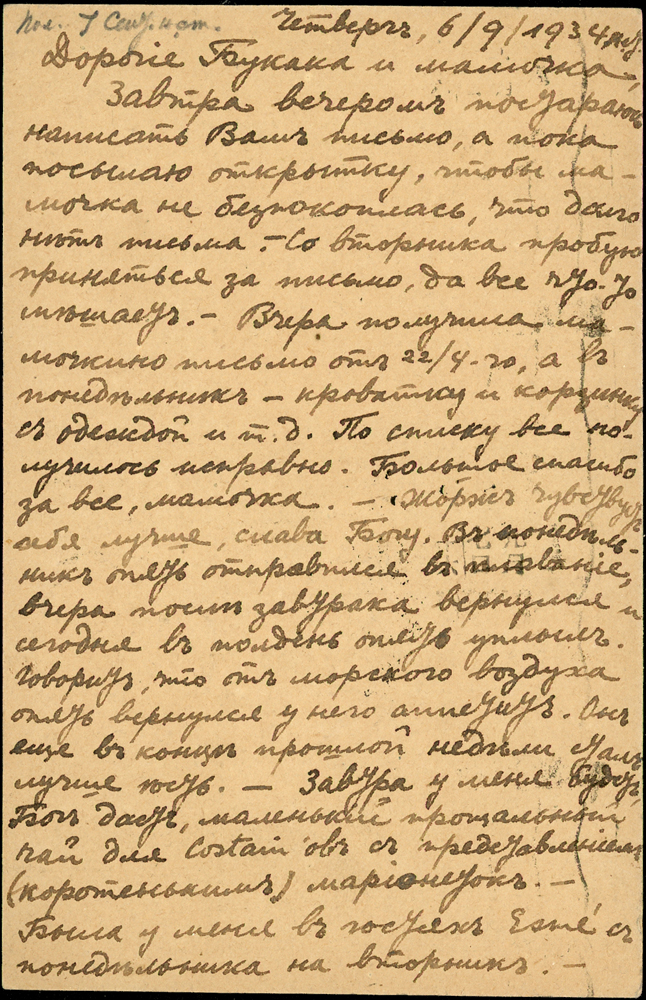 Пол. 7 Сент.
Четвергъ, 6/9/1934
Дорогіе Букака и мамочка,
Завтра вечеромъ постараюсь
написать Вамъ письмо, а пока
посылаю открытку, чтобы ма-
мочка не безпокоилась, что долго
нѣтъ письма. – Со вторника пробую
приняться за письмо, да все что-то
мѣшаетъ. – Вчера получила ма-
мочкино письмо отъ 22/4-го, а въ
понедѣльникъ – кроватку и корзинку
съ одеждой и т.д. По списку все по-
лучилось исправно. Большое спасибо
за все, мамочка. – Жоржъ чувствуетъ
себя лучше, слава Богу. Въ понедѣль-
никъ опять отправился въ плаваніе,
вчера послѣ завтрака вернулся и
сегодня въ полдень опять уплылъ.
Говоритъ, что отъ морского воздуха
опять вернулся у него аппетитъ. Онъ
еще въ концѣ прошлой недѣли сталъ
лучше ѣсть. – Завтра у меня будетъ,
Богъ дастъ, маленькій прощальный
чай для Costain'овъ съ представленіемъ
(коротенькимъ) маріонетокъ. –
Была у меня въ гостяхъ Esmé съ
понедѣльника на вторникъ. –